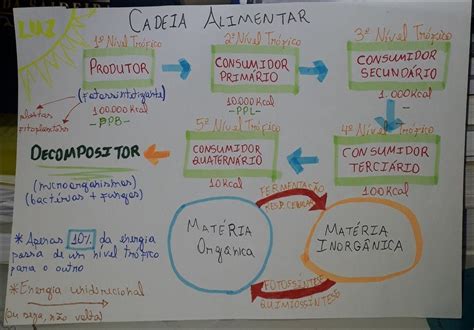 LUZ
CADEIA ALIMENTAR
1º Nível Trófico
PRODUTOR
(fotossintetizante)
100.000 Kcal
-PPB-
plantas
fitoplanctons
2º Nível Trófico
CONSUMIDOR
PRIMÁRIO
10.000 Kcal
-PPL-
3º Nível Trófico
CONSUMIDOR
SECUNDÁRIO
1.000 Kcal
4º Nível Trófico
CONSUMIDOR
TERCIÁRIO
100 Kcal
5º Nível Trófico
CONSUMIDOR
QUATERNÁRIO
10 Kcal
DECOMPOSITOR
(microorganismos)
(bactérias + fungos)
* Apenas 10% da energia
passa de um nível trófico
para o outro
* Energia unidirecional
ou seja, não volta!
FERMENTAÇÃO
RESP. CELULAR
MATÉRIA
Orgânica
MATÉRIA
INORGÂNICA
FOTOSSÍNTESE
QUIMIOSSÍNTESE